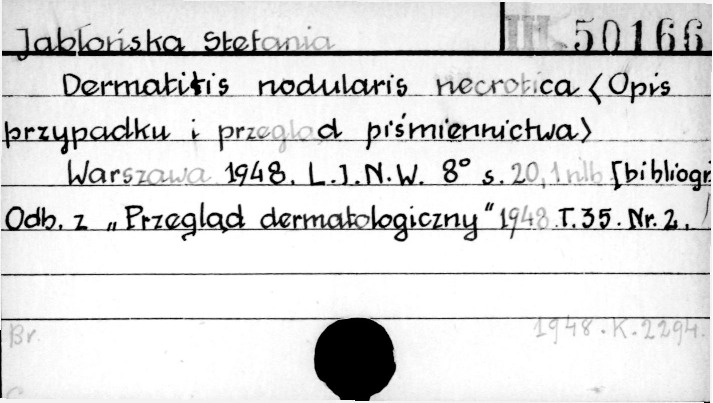 Jabłońska Stefania III 50166
Dermatitis nodularis necrotica <Opis
przypadku i przegląd piśmiennictwa>
Warszawa 1948. L.I.N.W. 8° s. 20, 1 nlb [bibliogr
Odb. z „Przegląd dermatologiczny" 1948 T.35. Nr. 2.
Br. 1948.K.2294.